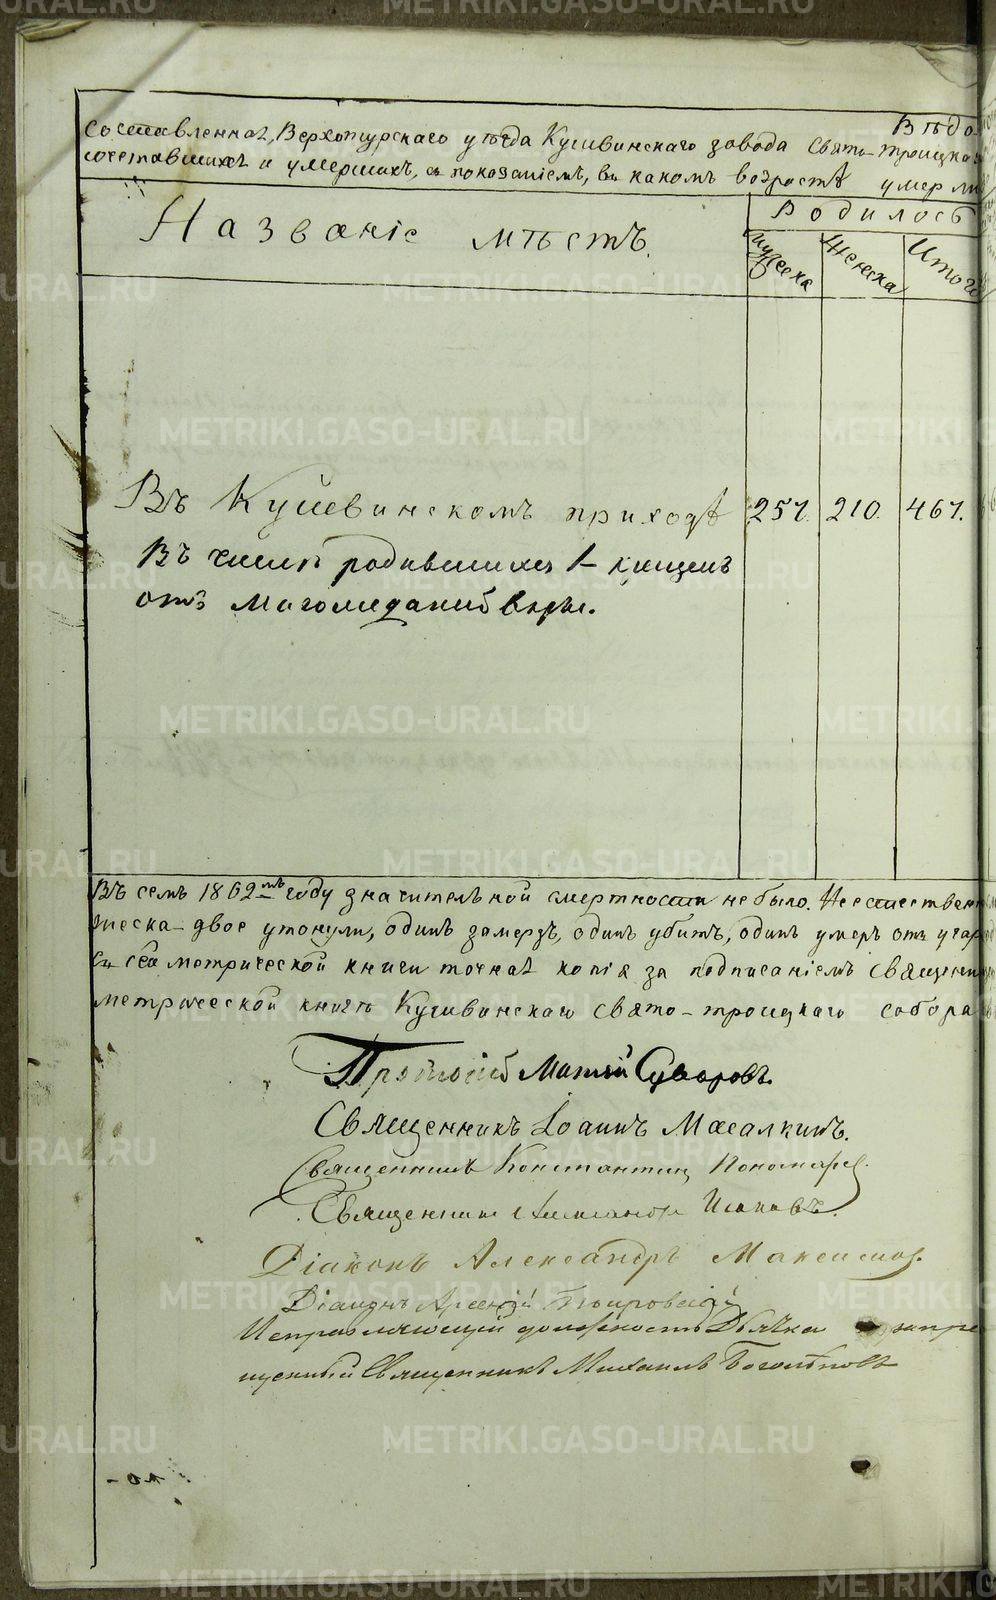 METRIKI.GASO-URAL.RU
Вѣдо
составленная, Верхотурскаго уѣзда Кушвинскаго завода Свято-троицка
сочетавшихся и умершихъ, съ показаніемъ, въ какомъ возрастѣ умерли
Названіе мѣстъ.
Родилось
Мужеска
Женска
Итого
Въ Кушвинскомъ приходѣ 257. 210. 467.
Въ числѣ родившихся 1 крещенъ
отъ Магометанской вѣры.
Въ семъ 1862мъ году значительной смертности не было. Неестествен
ческа двое утонули, одинъ замерзъ, одинъ убитъ, одинъ умеръ отъ угар
Съ сей метрической книги точная копія за подписаніемъ Священ
метрической книгѣ Кушвинскаго Свято-троицкаго собора
Протоіей Матѳій Суворовъ.
Священникъ Іоаннъ Масалкинъ.
Священникъ Константинъ Пономарев.
Священникъ Александръ Исаковъ.
Діаконъ Александръ Максимов.
Діаконъ Арсеній
Исправляющій должность Дьячка запре
щенный Священникъ Михаилъ Боголѣповъ